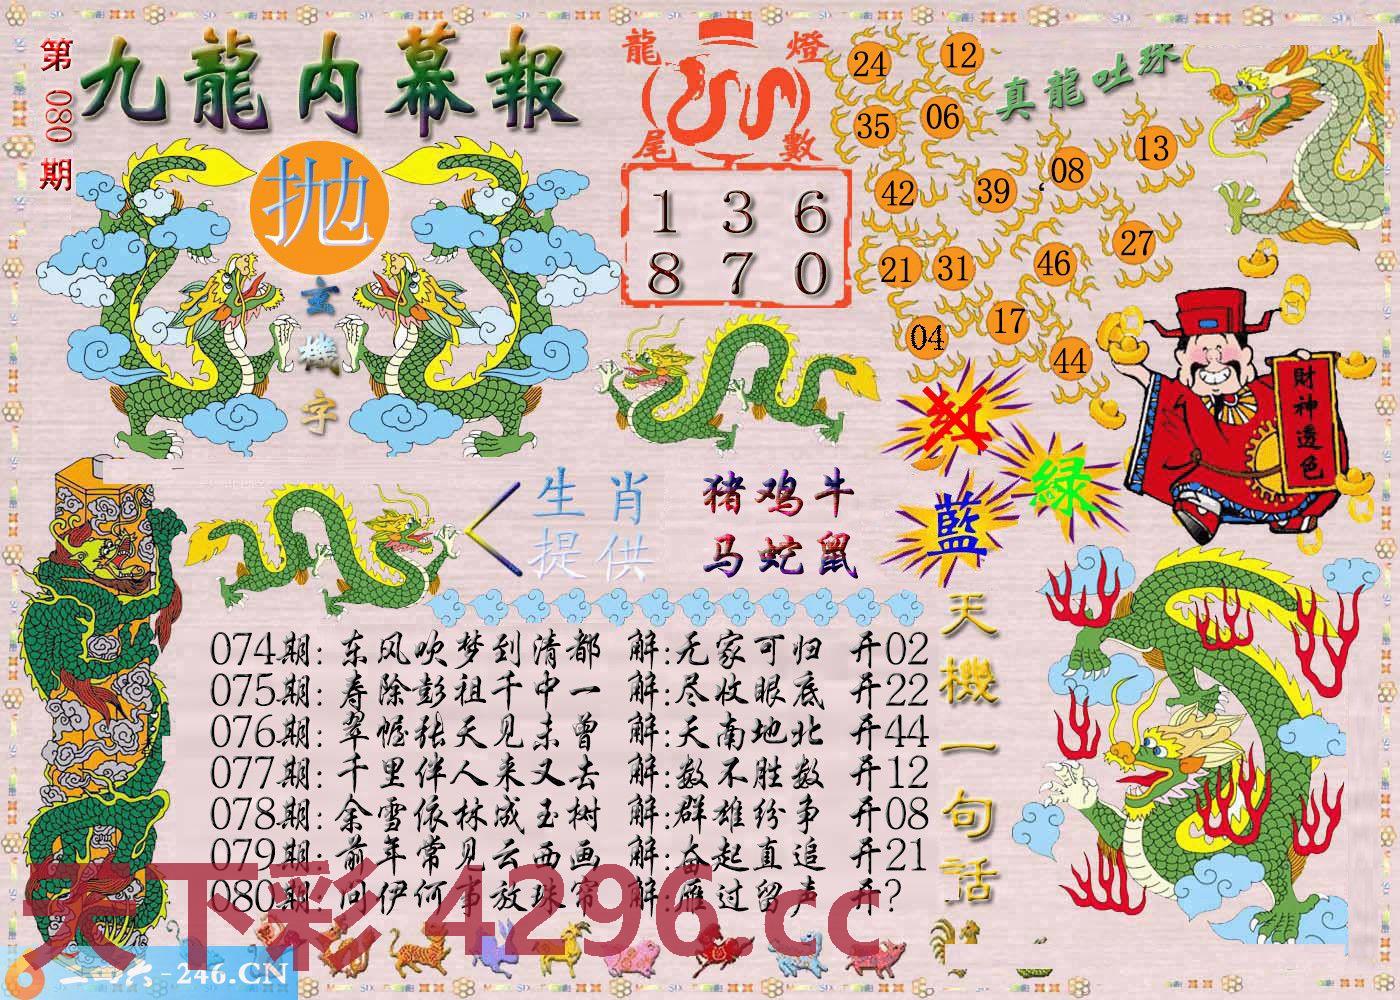 第080期
九龍内幕報
抛
玄機字
龍燈
尾數
1 3 6
8 7 0
真龍吐珠
24 12
35 06
13
08
42 39
27
21 31 46
04 17
44
財神透色
紅
緑
藍
生肖
提供
猪鸡牛
马蛇鼠
天機一句話
074期: 东风吹梦到清都 解:无家可归 开02
075期: 寿除彭祖千中一 解:尽收眼底 开22
076期: 翠幄张天见未曾 解:天南地北 开44
077期: 千里伴人来又去 解:数不胜数 开12
078期: 余雪依林成玉树 解:群雄纷争 开08
079期: 前年常见云西画 解:奋起直追 开21
080期: 问伊何事放珠帘 解:雁过留声 开?
天下彩 4296.cc
二四六-246.CN